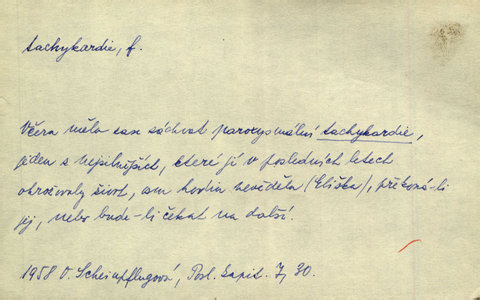 tachykardie, f.
Včera měla zase záchvat paroxysmální tachykardie,
jeden z nejsilnějších, které jí v posledních letech
ohrožovaly život, ani hodin nevěděla (Eliška), překoná-li
jej, nebo bude-li čekat na další.
1958 O. Scheinpflugová, Posl. kapit. 7, 30.